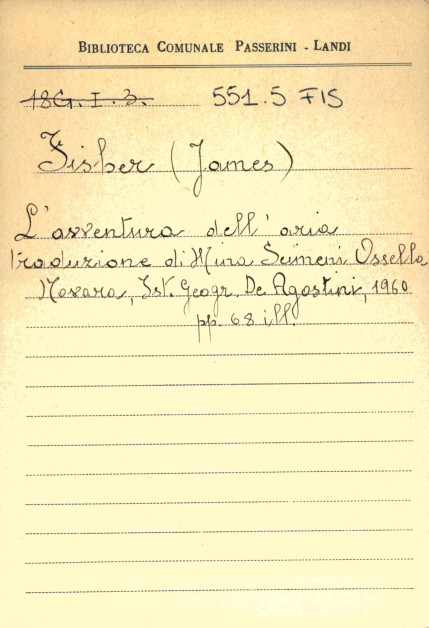 BIBLIOTECA COMUNALE PASSERINI - LANDI
18G. I. 3. 551.5 FIS
Fisher (James)
L'avventura dell'aria
traduzione di Mina Ossella
Novara, Ist. Geogr. De Agostini, 1960
pp. 68 ill.